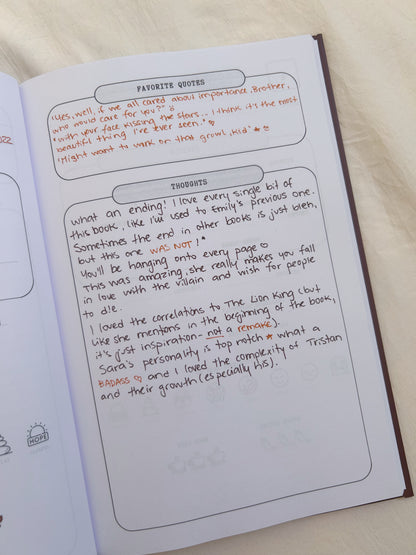 2022
FAVORITE QUOTES
"Yes, well, if we all cared about importance, Brother,
who would care for you?"
"With your face kissing the stars... I think it's the most
beautiful thing I've ever seen."
"Might want to work on that growl, kid"
THOUGHTS
What an ending! I love every single bit of
this book, like I'm used to Emily's previous one.
Sometimes the end in other books is just bleh,
but this one WAS NOT!*
You'll be hanging onto every page
This was amazing, she really makes you fall
in love with the villain and wish for people
to die.
I loved the correlations to The Lion King (but
like she mentions in the beginning of the book,
it's just inspiration- not a remake).
Sara's personality is top notch * what a
BADASS ♡ and I loved the complexity of Tristan
and their growth (especially his).
HOPE